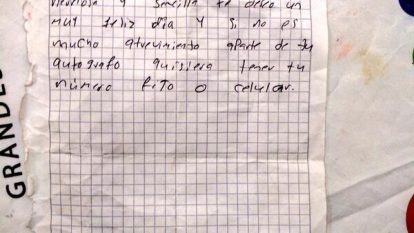 y sencilla te deseo un
muy feliz día y si no es
mucho atrevimiento aparte de tu
autografo quisiera tener tu
número fijo o celular.
GRANDE